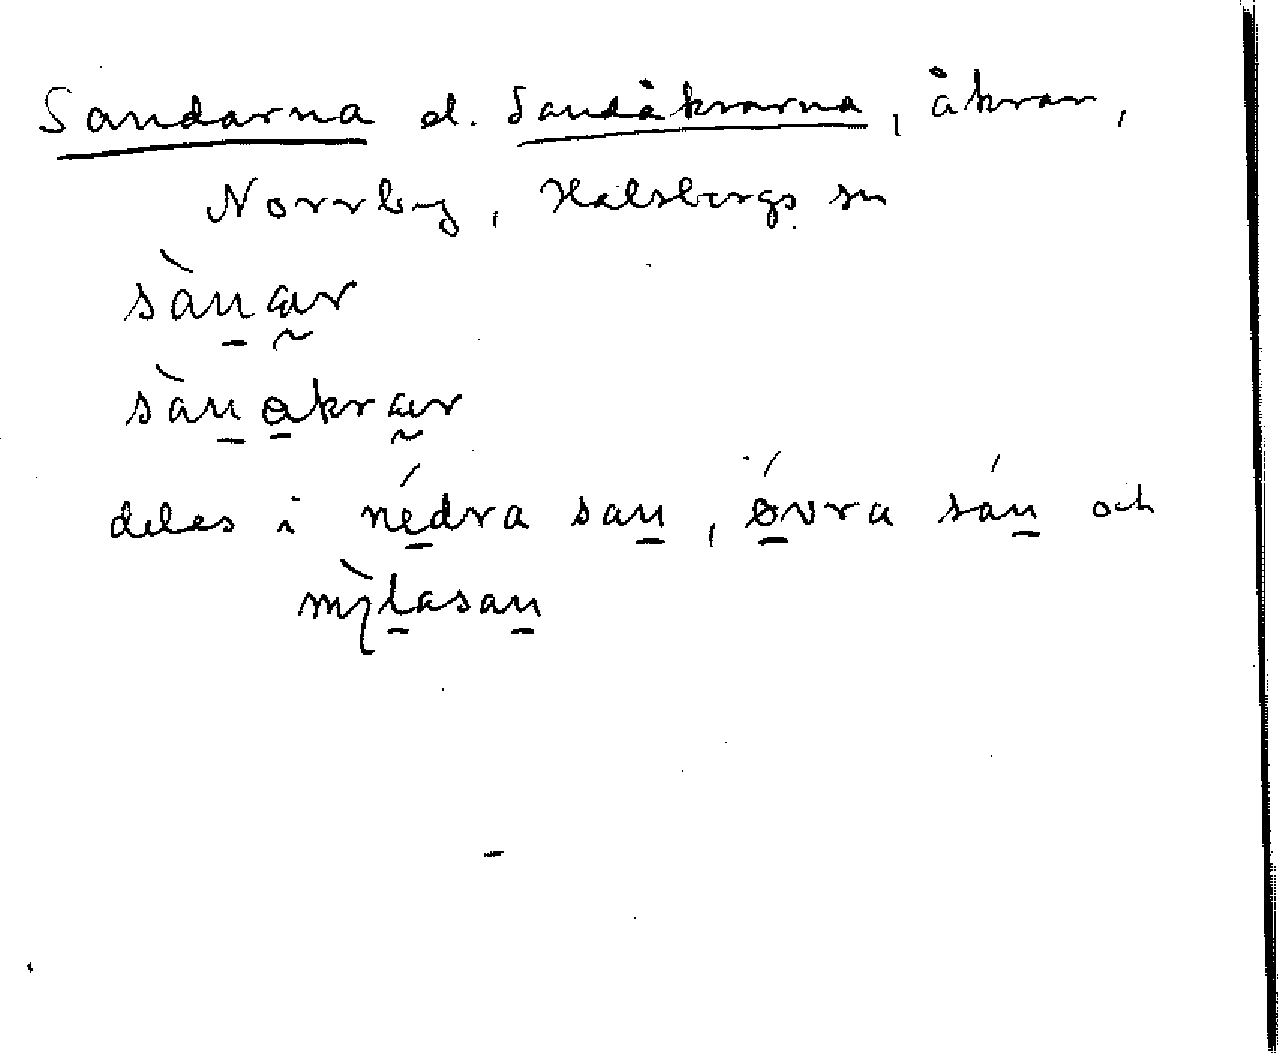 Sandarna el. Sandåkrarna, åkrar,
Norrby, Hallsbergs sn
sànar
sànakrar
delas i nédra san, øvra sán och
mỳlasan